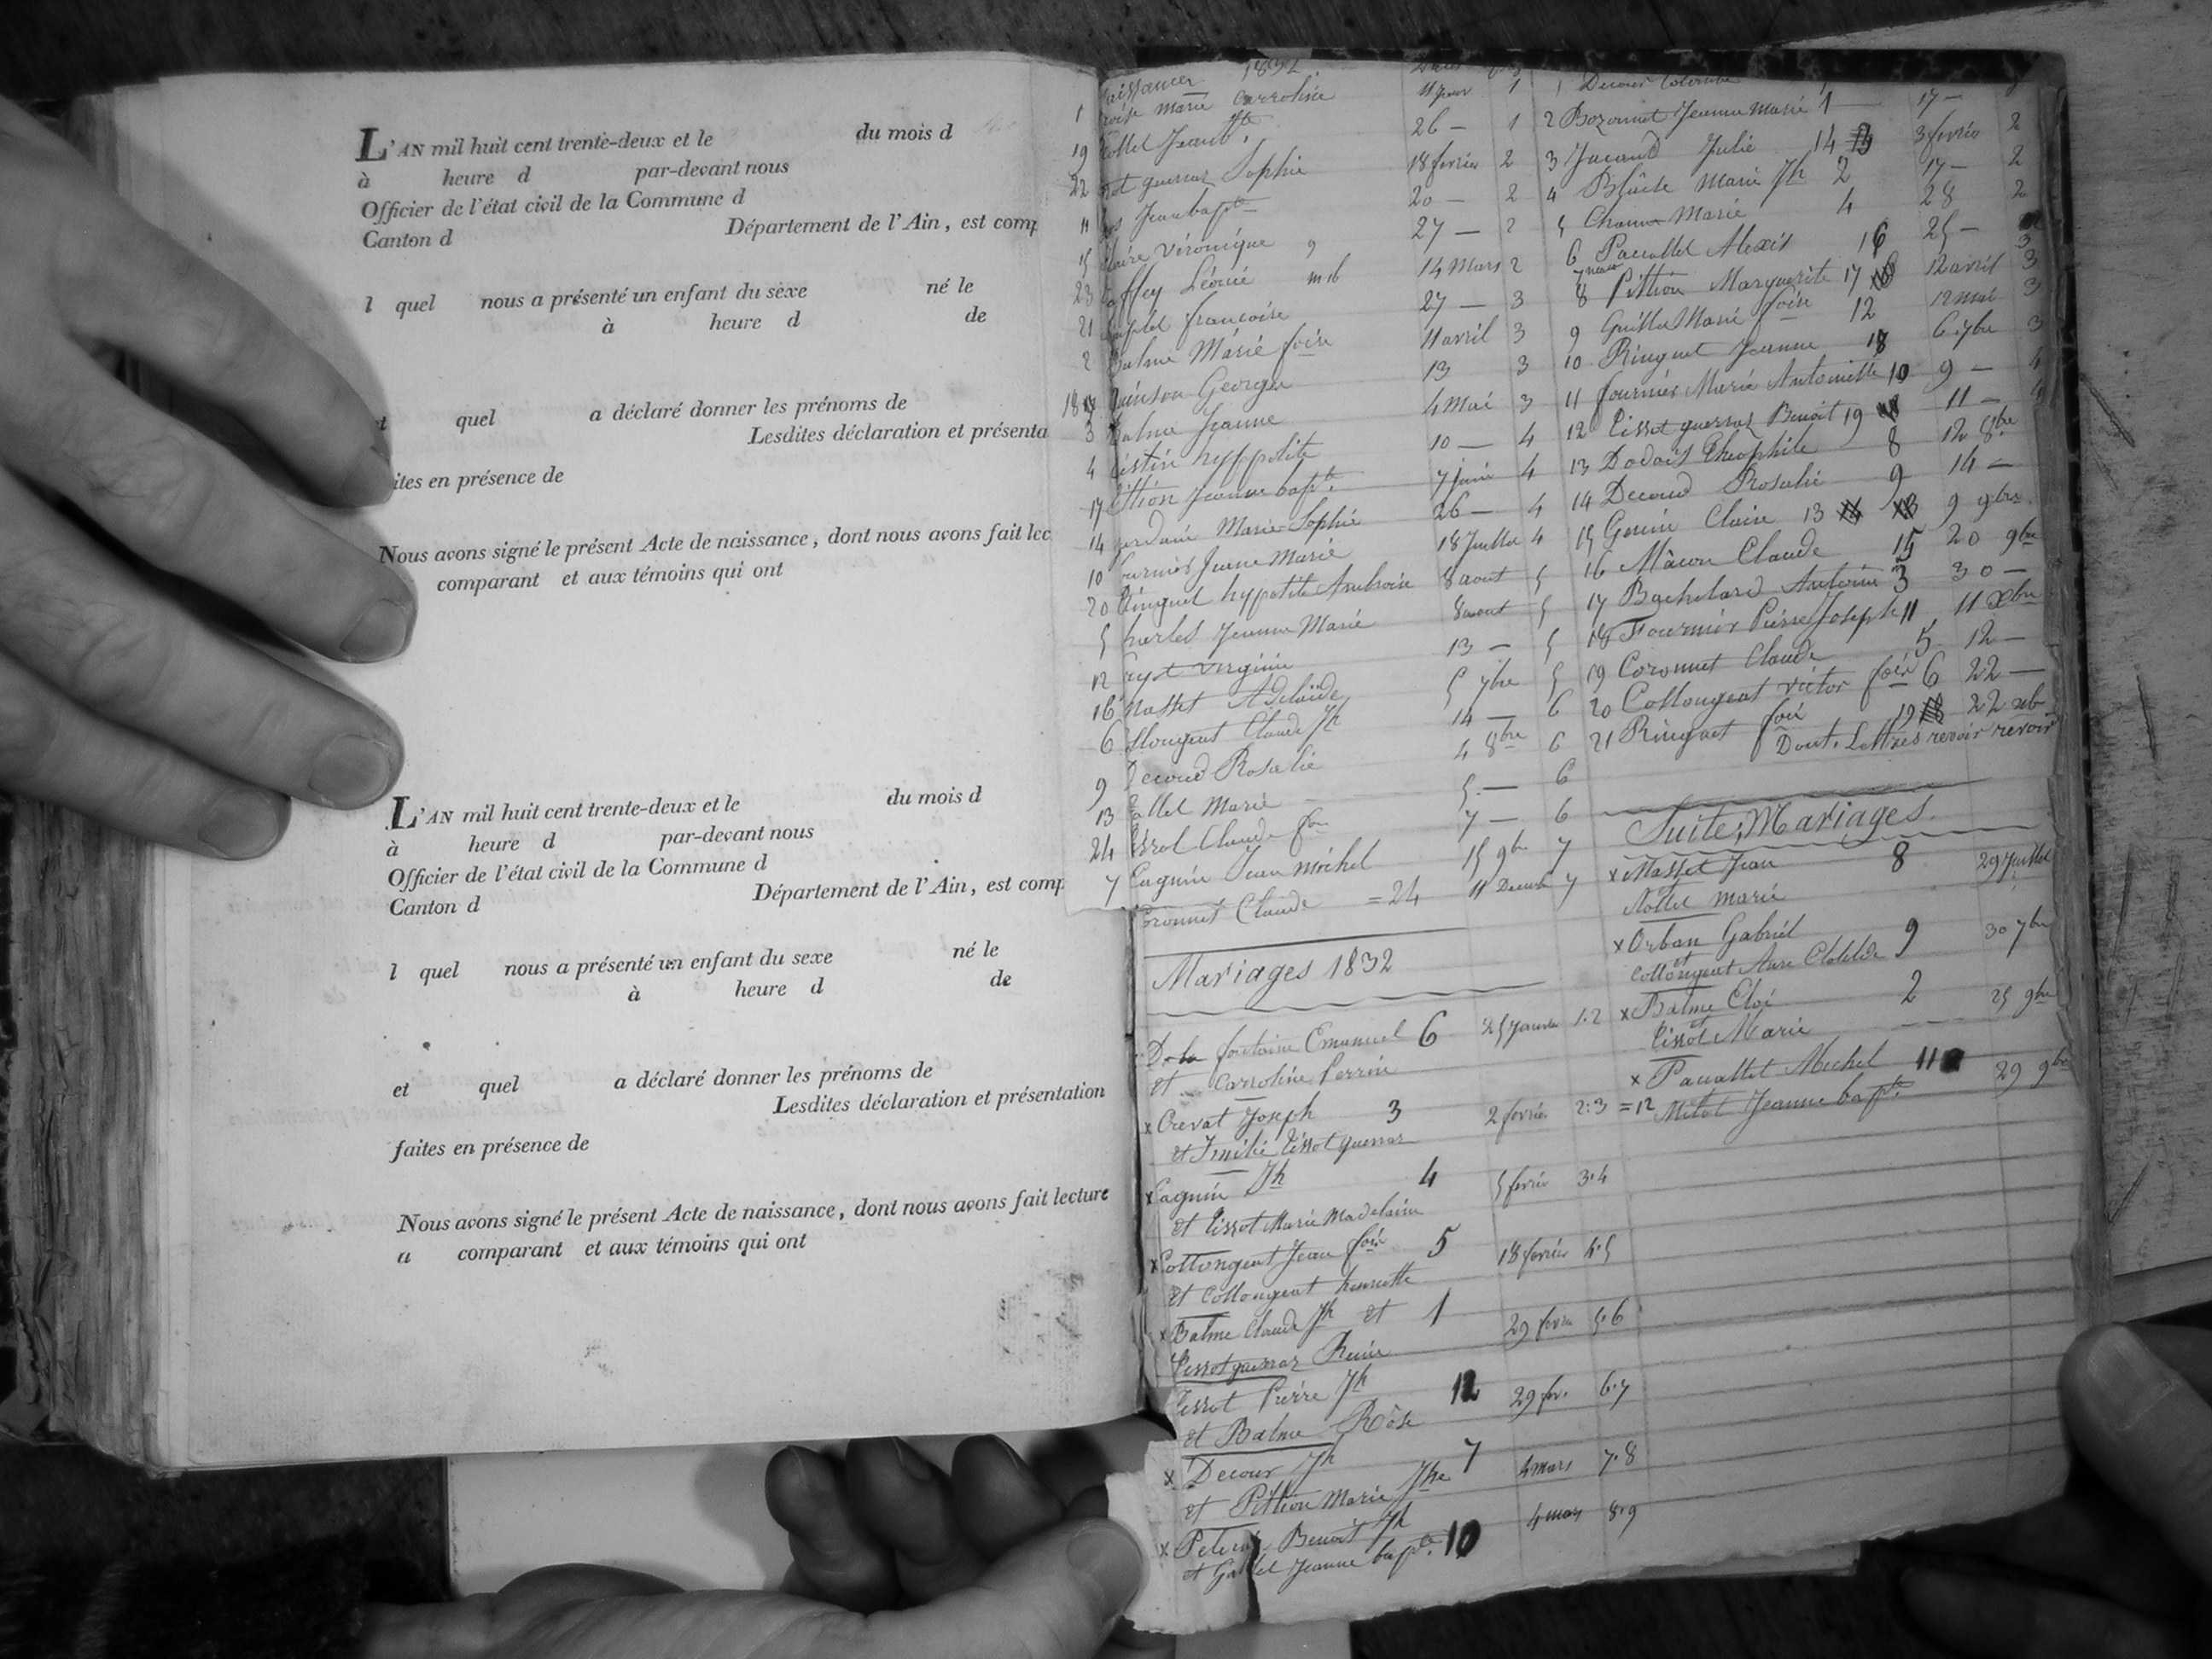 L'AN mil huit cent trente-deux et le du mois d
à heure d par-devant nous
Officier de l'état civil de la Commune d
Canton d Département de l'Ain, est comp
l quel nous a présenté un enfant du sexe né le
à heure d de
et quel a déclaré donner les prénoms de
Lesdites déclaration et présenta
ites en présence de
Nous avons signé le présent Acte de naissance, dont nous avons fait lec
comparant et aux témoins qui ont
L'AN mil huit cent trente-deux et le du mois d
à heure d par-devant nous
Officier de l'état civil de la Commune d
Canton d Département de l'Ain, est comp
l quel nous a présenté un enfant du sexe né le
à heure d de
et quel a déclaré donner les prénoms de
Lesdites déclaration et présentation
faites en présence de
Nous avons signé le présent Acte de naissance, dont nous avons fait lecture
a comparant et aux témoins qui ont
aissances 1832
1 marie Carroline 11 1
19 ollet Jean 26 — 1
22 ot guerraz Sophie 18 fevrier 2
11 Jean bapte 20 — 2
15 laire véronique 27 — 2
23 effey Léonie 14 Mars 2
21 francoise 27 — 3
2 Balme Marie foise 11 avril 3
18 uinson George 13 3
3 Balme Jeanne 4 Mai 3
4 hyppolite 10 — 4
17 ittion Jeanne bapte 7 juin 4
14 Marie-Sophie 26 — 4
10 ournier Jeanne Marie 18 Juillet 4
20 inguet hypolite Ambroise 8 aout 5
5 harles Jeanne Marie 8 aout 5
12 virginie 13 — 5
16 Masset Adelaïde 5 7bre 5
6 llongeat Claude Jh 14 — 6
9 Decoud Rosalie 4 8bre 6
13 allet Marie 5 — 6
24 issot Claude 7 — 6
7 aguin Jean michel 15 9bre 7
oronnet Claude = 24 11 Decembre 7
Mariages 1832
De la fontaine Emanuel 6 25 Janvier 1.2
et Carroline Perrin
x Crevat Joseph 3 2 fevrier 2:3
et tissot guerraz
x Caguin Jh 4 5 fevrier 3.4
et tissot Marie Madelaine
x Collongeat Jean fois 5 18 fevrier 4.5
et Collongeat henriette
x Balme Claude Jh et 1 29 fevrier 5.6
tissot guerraz Reine
tissot Pierre Jh 12 29 fev. 6.7
et Balme Rose
x Decour Jh 7 4 mars 7.8
et Pittion Marie Jhe
x Benoit Jh 4 mars 8.9
et Jeanne bapte 10
1 Decour Colombe 1
2 Bozonnet Jeanne Marie 1 17 —
3 Jacand Julie 14 3 fevrier 2
4 Marie Jh 2 17 — 2
5 Marie 4 28 2
6 Pacallet Alexis 16 25 —
8 Pittion Marguerite 17 12 avril 3
9 Marie foise 12 12 mai 3
10 Ringuet Jeanne 18 6 7bre 3
11 fournier Marie Antoinette 10 9 — 4
12 tissot guerraz Benoit 19 11 — 4
13 Dodat Theophile 8 12 8bre
14 Decoud Rosalie 9 14 —
15 Claire 13 9 9bre
16 Mâcon Claude 15 20 9bre
17 Bachelard Antoine 3 30 —
18 Fournier Pierre Joseph 11 11 Xbre
19 Coronnet Claude 5 12 —
20 Collongeat victor fois 6 22 —
21 Ringuet fois 19 22 xb
Dont. Lettres revoir revoir
Suite; Mariages.
x Masset Jean 8 29 Juillet
Nollet marie
x Orban Gabriel 9 30 7bre
et
Collongeat Anne Clotilde
x Balme Eloi 2 25 9bre
et
tissot Marie
x Pacallet Michel 11 29 9bre
= 12 Jeanne bapte